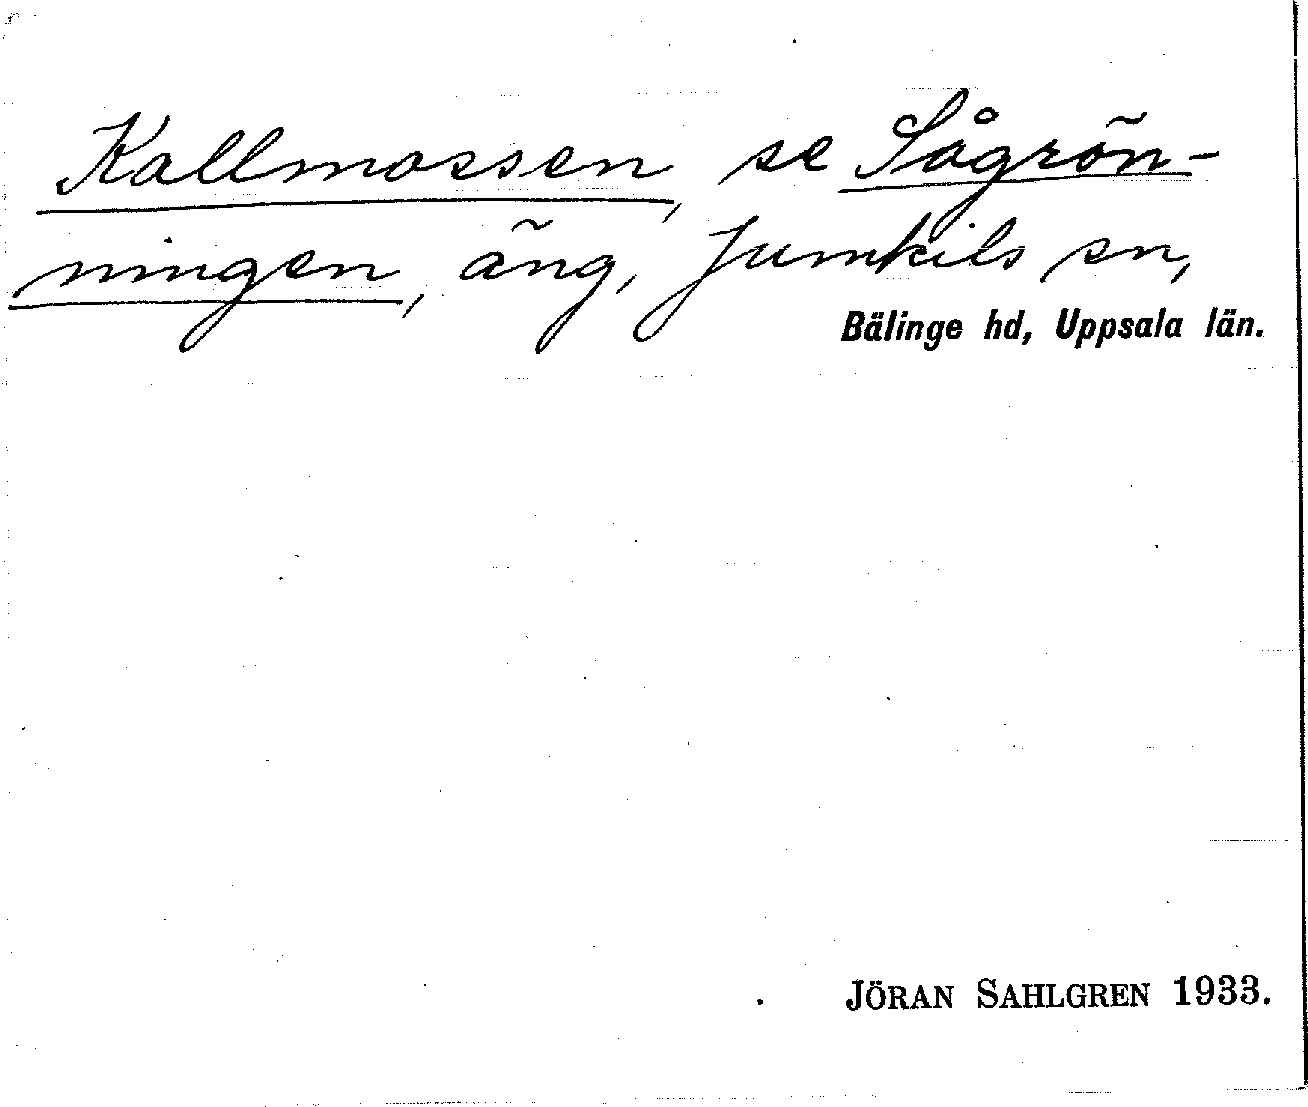 Kallmossen, se Sågrön-
ningen, äng, Jumkils sn,
Bälinge hd, Uppsala län.
JÖRAN SAHLGREN 1933.